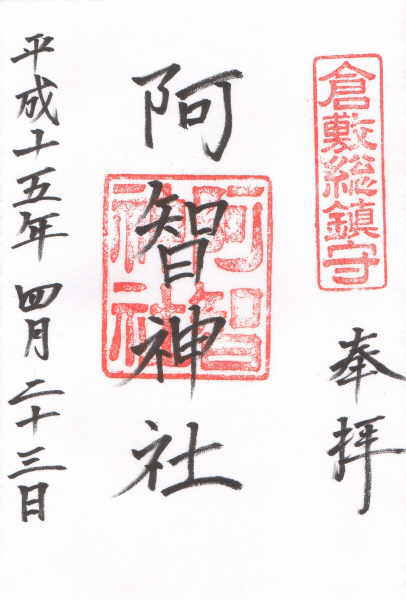 倉敷総鎮守
奉拝
阿智神社
阿智神社
平成十五年 四月二十三日